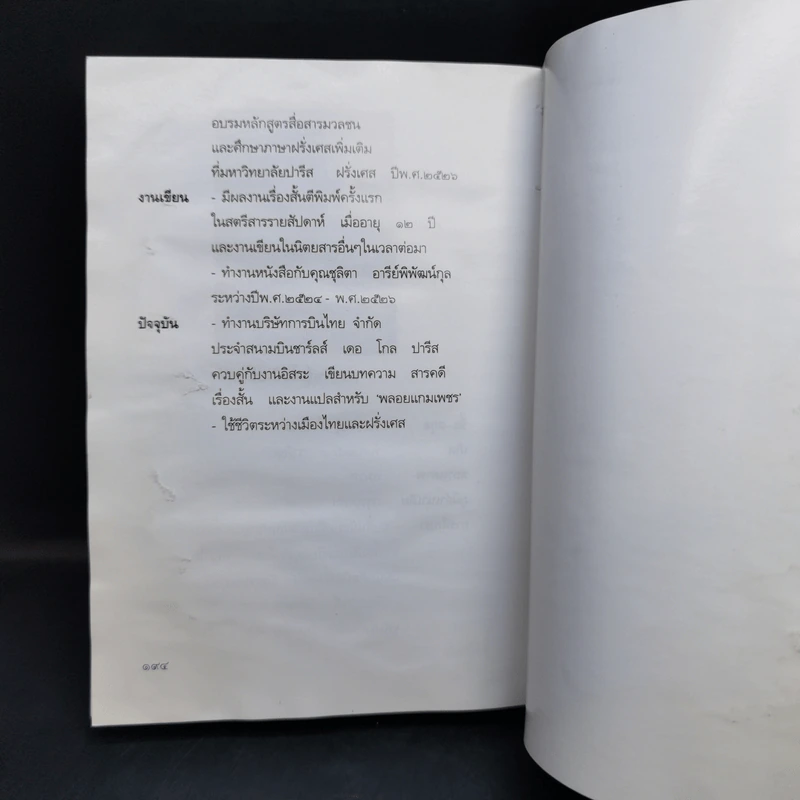 อบรมหลักสูตรสื่อสารมวลชน
และศึกษาภาษาฝรั่งเศสเพิ่มเติม
ที่มหาวิทยาลัยปารีส ฝรั่งเศส ปีพ.ศ.๒๕๒๖
งานเขียน - มีผลงานเรื่องสั้นตีพิมพ์ครั้งแรก
ในสตรีสารรายสัปดาห์ เมื่ออายุ ๑๒ ปี
และงานเขียนในนิตยสารอื่นๆในเวลาต่อมา
- ทำงานหนังสือกับคุณชุลิตา อารีย์พิพัฒน์กุล
ระหว่างปีพ.ศ.๒๕๒๔ - พ.ศ.๒๕๒๖
ปัจจุบัน - ทำงานบริษัทการบินไทย จำกัด
ประจำสนามบินชาร์ลส์ เดอ โกล ปารีส
ควบคู่กับงานอิสระ เขียนบทความ สารคดี
เรื่องสั้น และงานแปลสำหรับ 'พลอยแกมเพชร'
- ใช้ชีวิตระหว่างเมืองไทยและฝรั่งเศส
๑๙๔